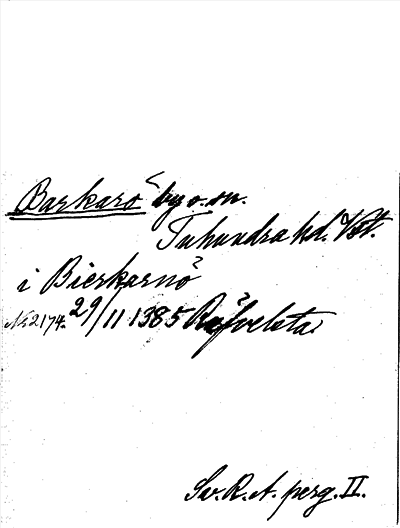 Barkarö by o. sn.
Tuhundra hd. Vstm.
i Bierkarnö
N:o 2174. 29/11 1385 Räfvelsta
Sv. R. A. perg. II.